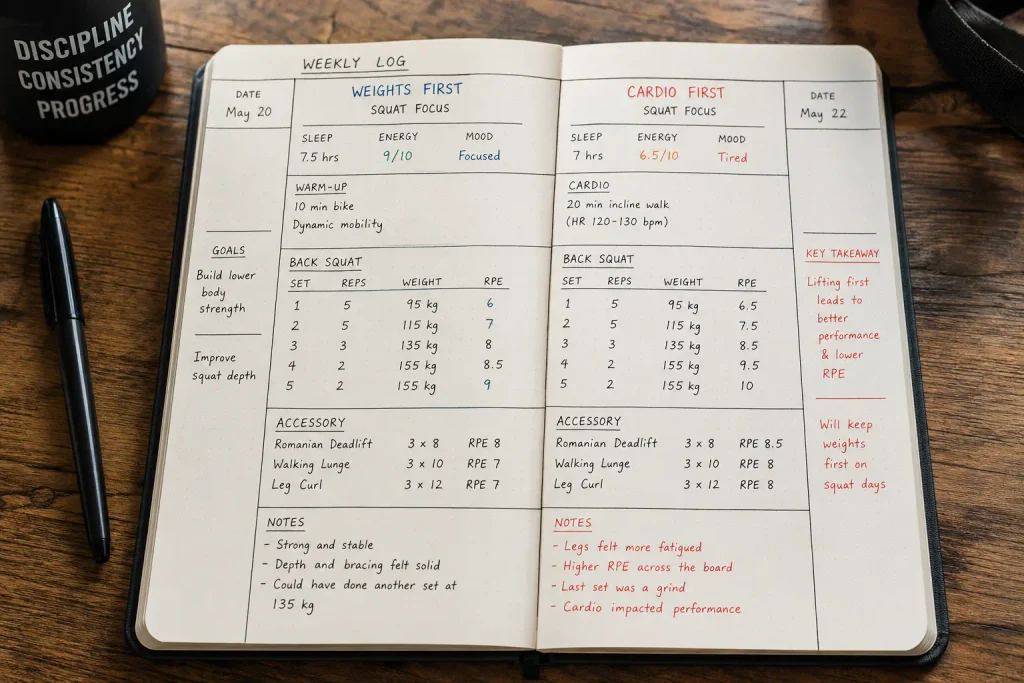 DISCIPLINE
CONSISTENCY
PROGRESS
WEEKLY LOG
DATE
May 20
GOALS
Build lower
body
strength
Improve
squat depth
WEIGHTS FIRST
SQUAT FOCUS
SLEEP ENERGY MOOD
7.5 hrs 9/10 Focused
WARM-UP
10 min bike
Dynamic mobility
BACK SQUAT
SET REPS WEIGHT RPE
1 5 95 kg 6
2 5 115 kg 7
3 3 135 kg 8
4 2 155 kg 8.5
5 2 155 kg 9
ACCESSORY
Romanian Deadlift 3 × 8 RPE 8
Walking Lunge 3 × 10 RPE 7
Leg Curl 3 × 12 RPE 7
NOTES
- Strong and stable
- Depth and bracing felt solid
- Could have done another set at
135 kg
CARDIO FIRST
SQUAT FOCUS
SLEEP ENERGY MOOD
7 hrs 6.5/10 Tired
CARDIO
20 min incline walk
(HR 120-130 bpm)
BACK SQUAT
SET REPS WEIGHT RPE
1 5 95 kg 6.5
2 5 115 kg 7.5
3 3 135 kg 8.5
4 2 155 kg 9.5
5 2 155 kg 10
ACCESSORY
Romanian Deadlift 3 × 8 RPE 8.5
Walking Lunge 3 × 10 RPE 8
Leg Curl 3 × 12 RPE 8
NOTES
- Legs felt more fatigued
- Higher RPE across the board
- Last set was a grind
- Cardio impacted performance
DATE
May 22
KEY TAKEAWAY
Lifting first
leads to
better
performance
& lower
RPE
Will keep
weights
first on
squat days